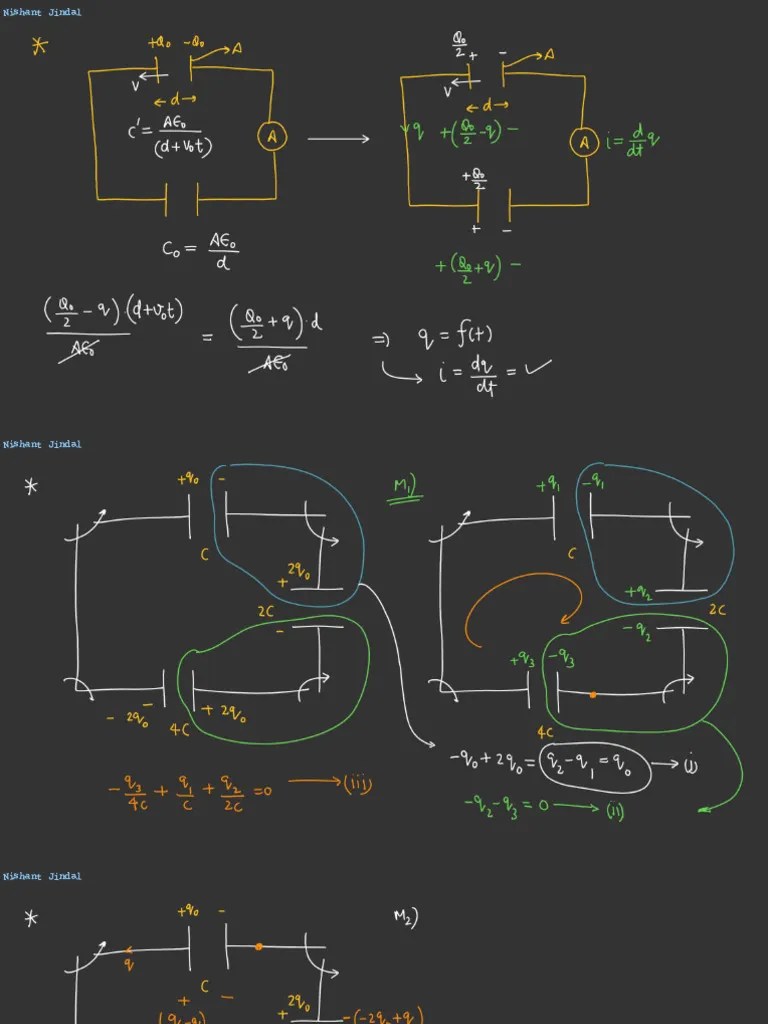 Nishant Jindal
* +Q₀ -Q₀ A
V ← d →
C' = Aϵ₀/(d+v₀t)
A
C₀ = Aϵ₀/d
Q₀/2 + - A
V ← d →
q +(Q₀/2 - q) -
A i = d/dt q
+Q₀/2
+ -
+(Q₀/2 + q) -
(Q₀/2 - q)·(d+v₀t)/Aϵ₀ = (Q₀/2 + q)·d/Aϵ₀ ⇒ q = f(t)
i = dq/dt = ✓
Nishant Jindal
* +q₀ -
C
2q₀
+
2C
-
- 2q₀ - + 2q₀
4C
M₁) +q₁ -q₁
C
+q₂
2C
-q₂
+q₃ -q₃
4C
-q₀ + 2q₀ = q₂ - q₁ = q₀ → (i)
-q₂ - q₃ = 0 → (ii)
-q₃/4C + q₁/C + q₂/2C = 0 → (iii)
Nishant Jindal
* +q₀ - M₂)
q
C
+ -
2q₀
+ -(-2q₀+q)